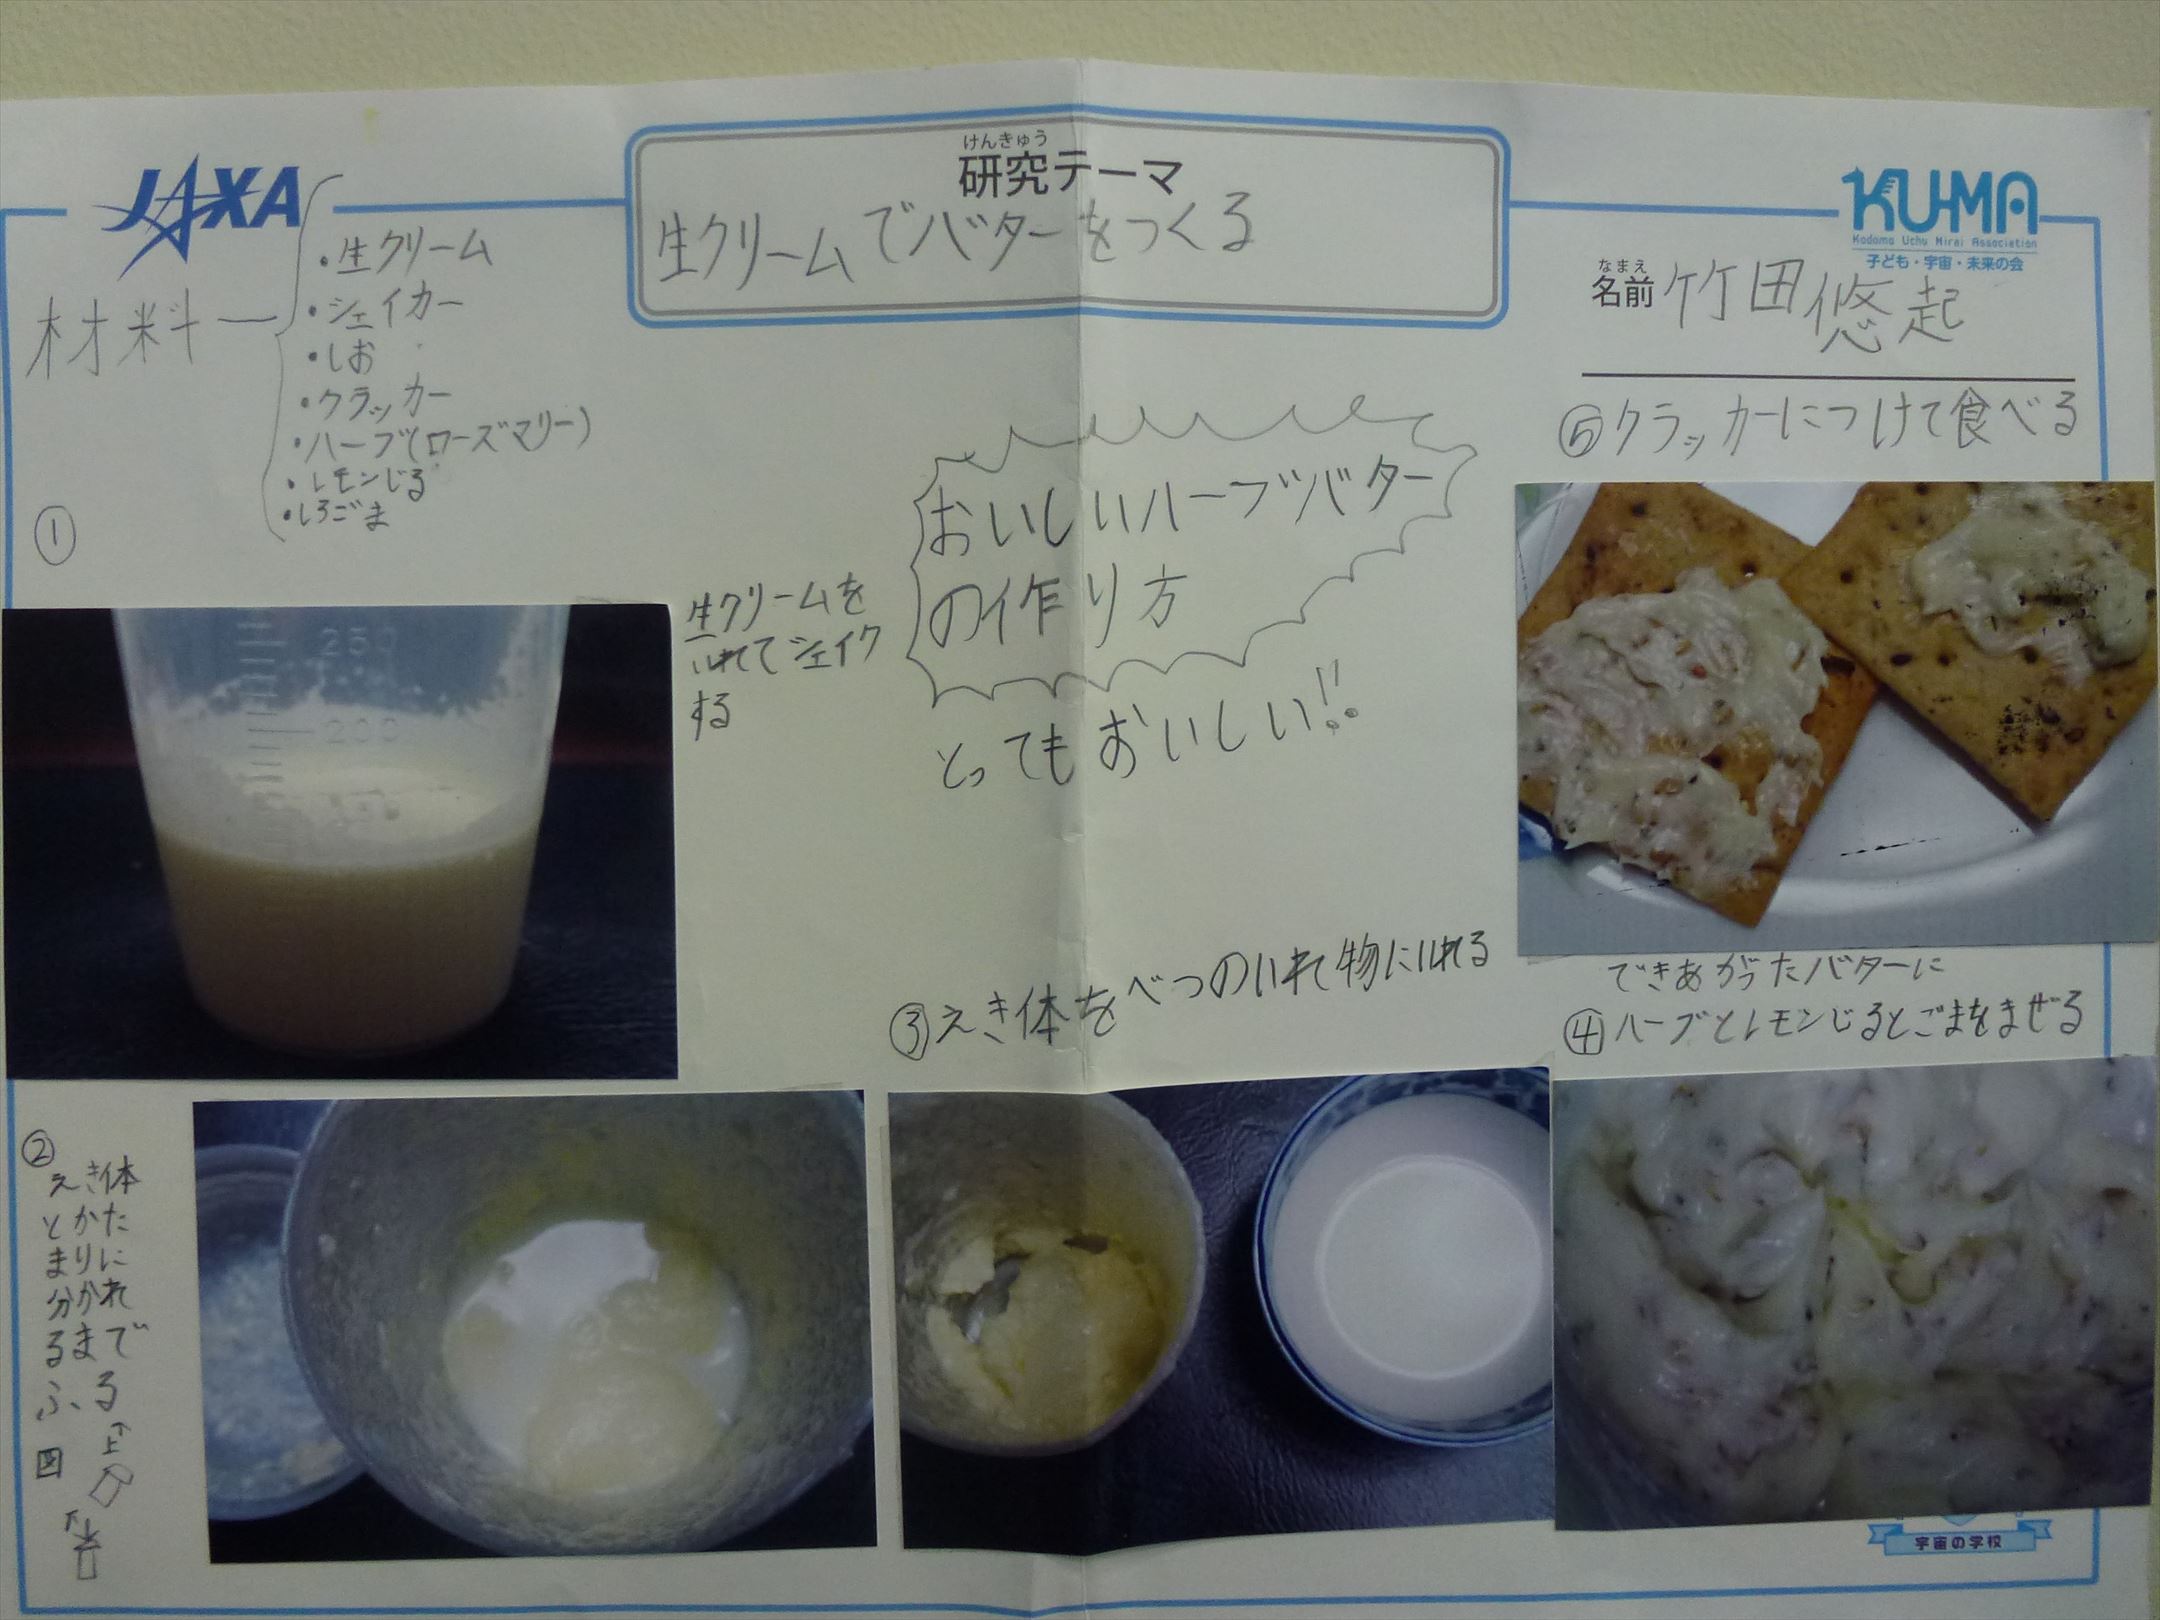 JAXA
けんきゅう
研究テーマ
生クリームでバターをつくる
KU-MA
Kodomo Uchu Mirai Association
子ども・宇宙・未来の会
なまえ
名前 竹田悠起
材料
・生クリーム
・シェイカー
・しお
・クラッカー
・ハーブ(ローズマリー)
・レモンじる
・しろごま
おいしいハーブバター
の作り方
とってもおいしい!!
①
生クリームを
いれてシェイク
する
250
200
②
えき体
とかた
まりに
分かれ
るまで
ふる
図
上
③えき体をべつのいれ物にいれる
できあがったバターに
④ハーブとレモンじるとごまをまぜる
⑤クラッカーにつけて食べる
宇宙の学校